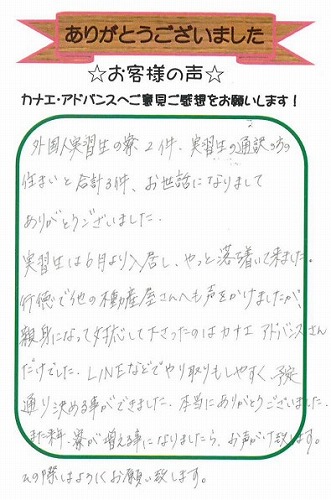 ありがとうございました
☆お客様の声☆
カナエ・アドバンスへご意見ご感想をお願いします！
外国人実習生の寮2件、実習生の通訳の方の
住まいと合計3件、お世話になりまして
ありがとうございました。
実習生は6月より入居し、やっと落ち着いて来ました。
行徳で他の不動産屋さんへも声をかけましたが、
親身になって対応して下さったのはカナエアドバンスさん
だけでした。LINEなどでやり取りもしやすく、予定
通り決める事ができました。本当にありがとうございました。
また来年、寮が増える事になりましたら、お声がけ致します。
その際はよろしくお願い致します。